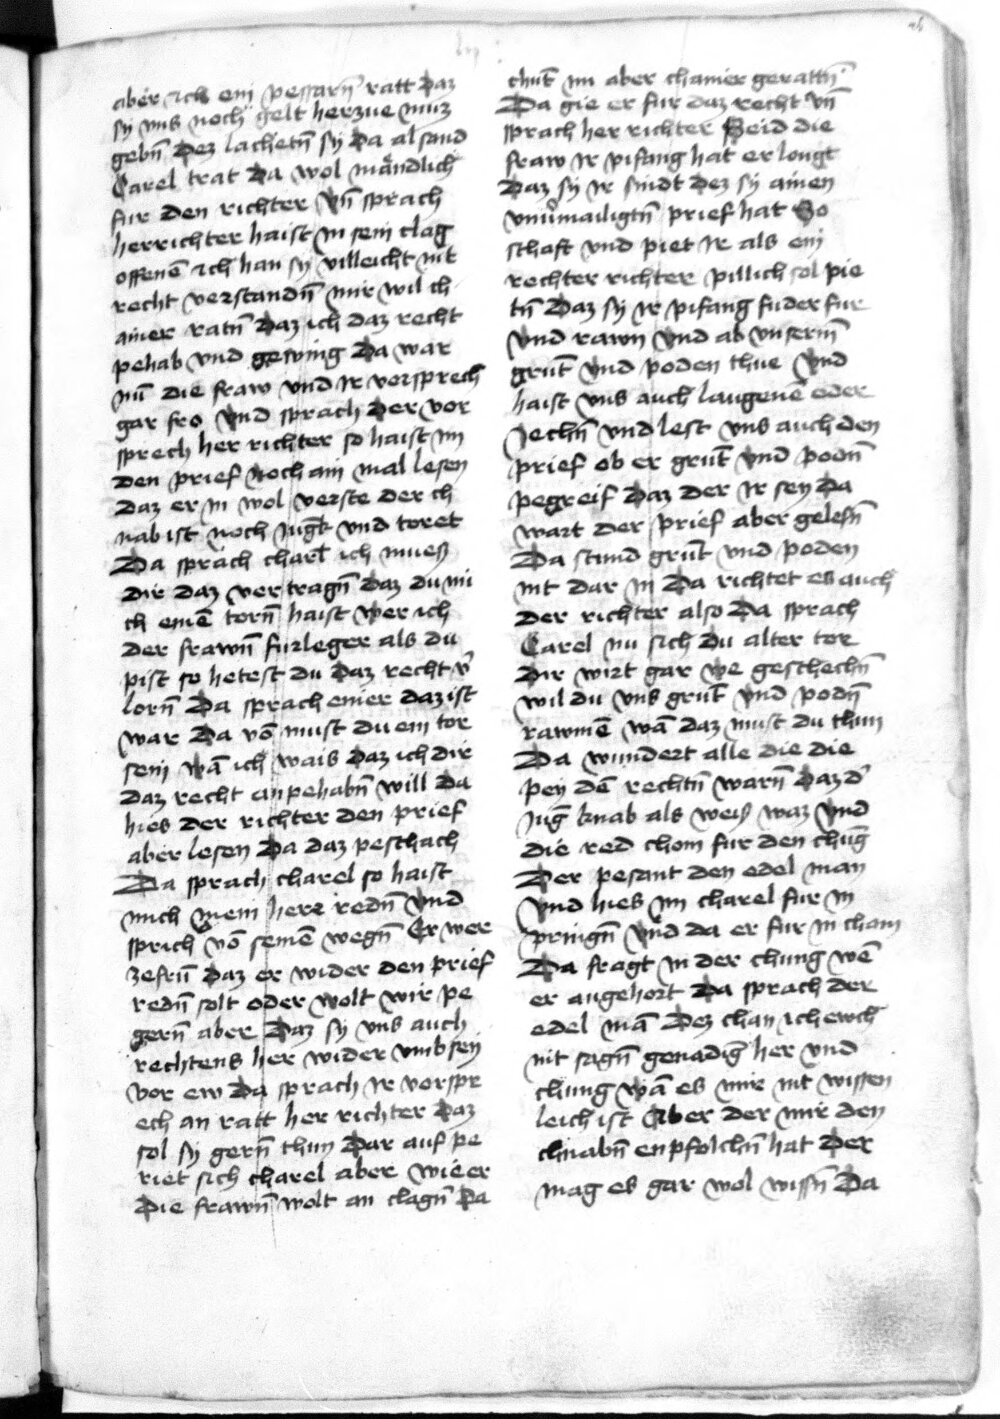 aber ich ein pessarn̄ ratt daz
sy vns noch gelt herzue muz
gebn̄ dez lachetn̄ sy da alsand
Carel trat da wol mändlich
fur den richter vn̄ sprach
herrichter haist in sein clag
offenē ich han sy villeicht nit
recht verstandn̄ mir wil ch
ainer ratn̄ daz ich daz recht
pehab vnd geswing da war
nū die fraw vnd ir vorsprech
gar fro vnd sprach der vor
sprech her richter so haist im
den prief noch ain mal lesen
daz er in wol verste der ch
nab ist noch jūgk vnd toret
Da sprach charl ich mueß
dir daz vertragn̄ daz du mi
ch einē torn̄ haist wer ich
der frawn̄ furleger als du
pist so hetest du daz recht v̉
lorn̄ Da sprach einer daz ist
war da vō must du ein tor
sein wā ich wais daz ich dir
daz recht an pehabn̄ will da
hies der richter den prief
aber lesen Da daz peschach
Da sprach charel so haist
mich mein herr redn̄ vnd
sprich vō seinē wegn̄ Er wer
zefrū daz er wider den prief
redn̄ solt oder wolt wir pe
gern̄ aber daz sy vns auch
rechtens her wider vmb sey
vor ew da sprach ir vorspr
ech an ratt her richter daz
sol sy gern̄ thun Dar auf pe
riet sich charel aber wie er
Die frawn̄ wolt an clagn̄ Da
chūt im aber chainer gerattn̄
Da gie er fur daz recht vn̄
sprach her richter Seid die
fraw ir pifang hat erlougt
Daz sy ir sindt dez sy ainen
vnūmailigtn̄ prief hat So
schaft vnd piet ir als ein
rechter richter pillich sol pie
tn̄ Daz sy ir pifang fuder fur
vnd rawn vnd ab vnserm̄
grūt vnd poden thue vnd
haist vns auch laugenē oder
jechn̄ vnd lest vns auch den
prief ob er grūt vnd podn̄
pegreif daz der ir sey da
wart der prief aber gelesn̄
Da stund grūt vnd poden
nit dar in Da richtet es auch
der richter also Da sprach
Carel nu sich du alter tor
dir wirt gar we geschechn̄
wil du vns grūt vnd podn̄
rawmē wā daz must du thun
Da wundert alle die die
pey dē rechtn̄ warn̄ daz d̉
jūg knab als weiß waz vnd
die red chom fur den chūg
Der pesant den edel man
vnd hies im charel fur in
pringn̄ vnd da er fur in cham
Da fragt in der chung wē
er angehort Da sprach der
edel mā dez chan ich ewch
nit sagn̄ genadiḡ her vnd
chung wā es mir nit wissen
leich ist Aber der mir den
chnabn̄ enpfolchn̄ hat der
mag es gar wol wissn̄ Da